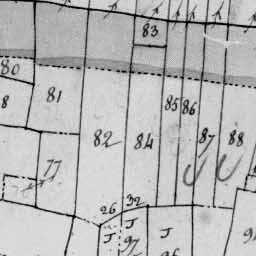 83
80
81
8
85 86
82
84
87
88
77
26
32
J
J
J
97